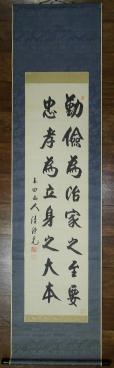 勤倹為治家之至要
忠孝為立身之大本